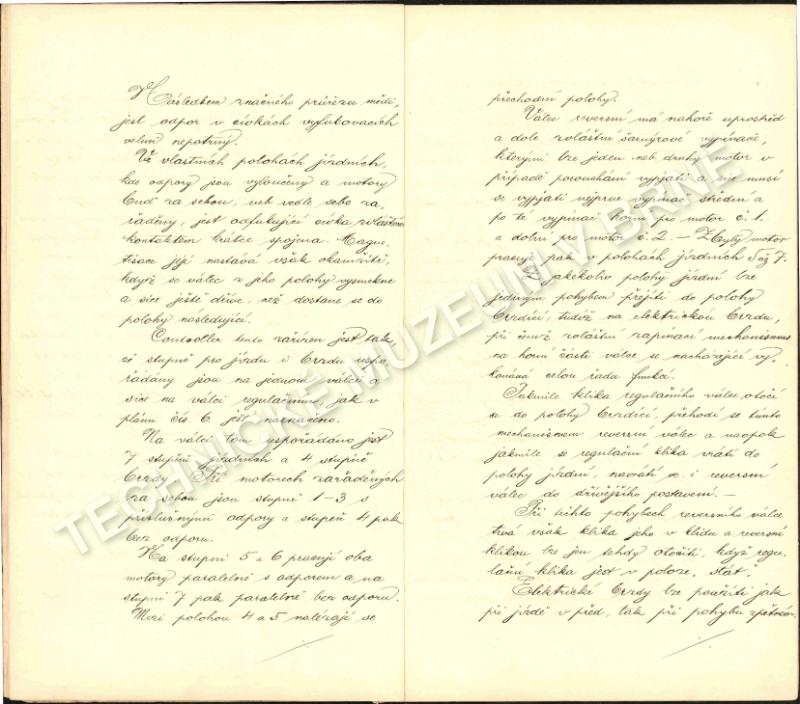 Následkem značného průřezu mědi,
jest odpor v cívkách vyfukovacích
velmi nepatrný.
Ve vlastních polohách jízdních,
kde odpory jsou vyloučeny a motory
buď za sebou, neb vedle sebe za,
řáděny, jest odfukující cívka zvláštním
kontaktem krátce spojena. Magne,
tisace její nastává však okamžitě,
když se válec z jeho polohy vysmekne
a sice ještě dříve, než dostane se do
polohy následující.
Controller tento zařízen jest tak,
že stupně pro jízdu i brzdu uspo,
řádány jsou na jednom válci a
sice na válci regulačnímu, jak v
plánu čís. 6 jest naznačeno.
Na válci tom uspořádáno jest
7 stupňů jízdních a 4 stupně
brzdy. Při motorech zařáděných
za sebou jsou stupně 1-3 s
příslušnými odpory a stupeň 4 pak
bez odporu.
Na stupni 5 a 6 pracují oba
motory paralelně s odporem a na
stupni 7 pak paralelně bez odporu.
Mezi polohou 4 a 5 nalézají se
přechodní polohy.
Válec reversní má nahoře uprostřed
a dole zvláštní šarnýrové vypínače,
kterými lze jeden neb druhý motor v
případě porouchání vypjati a sice musí
se vypjati nejprve vypínač střední a
po té vypínač horní pro motor č. 1.
a dolní pro motor č. 2. – Zbylý motor
pracuje pak v polohách jízdních 5 až 7.
Z jakékoliv polohy jízdní lze
jediným pohybem přejíti do polohy
brzdící, tudíž na elektrickou brzdu,
při čemž zvláštní zapínací mechanismus
na horní části válce se nacházející vy,
konává celou řadu funkcí.
Jakmile klika regulačního válce otočí
se do polohy brzdící, přehodí se tímto
mechanismem reversní válec a naopak
jakmile se regulační klika vrátí do
polohy jízdní, navrátí se i reversní
válec do dřívějšího postavení. –
Při těchto pohybech reversního válce
trvá však klika jeho v klidu a reversní
klikou lze jen tehdy otočiti, když regu,
lační klika jest v poloze „stát."
Elektrické brzdy lze použíti jak
při jízdě v před, tak při pohybu zpětném.
TECHNICKÉ MUZEUM V BRNĚ